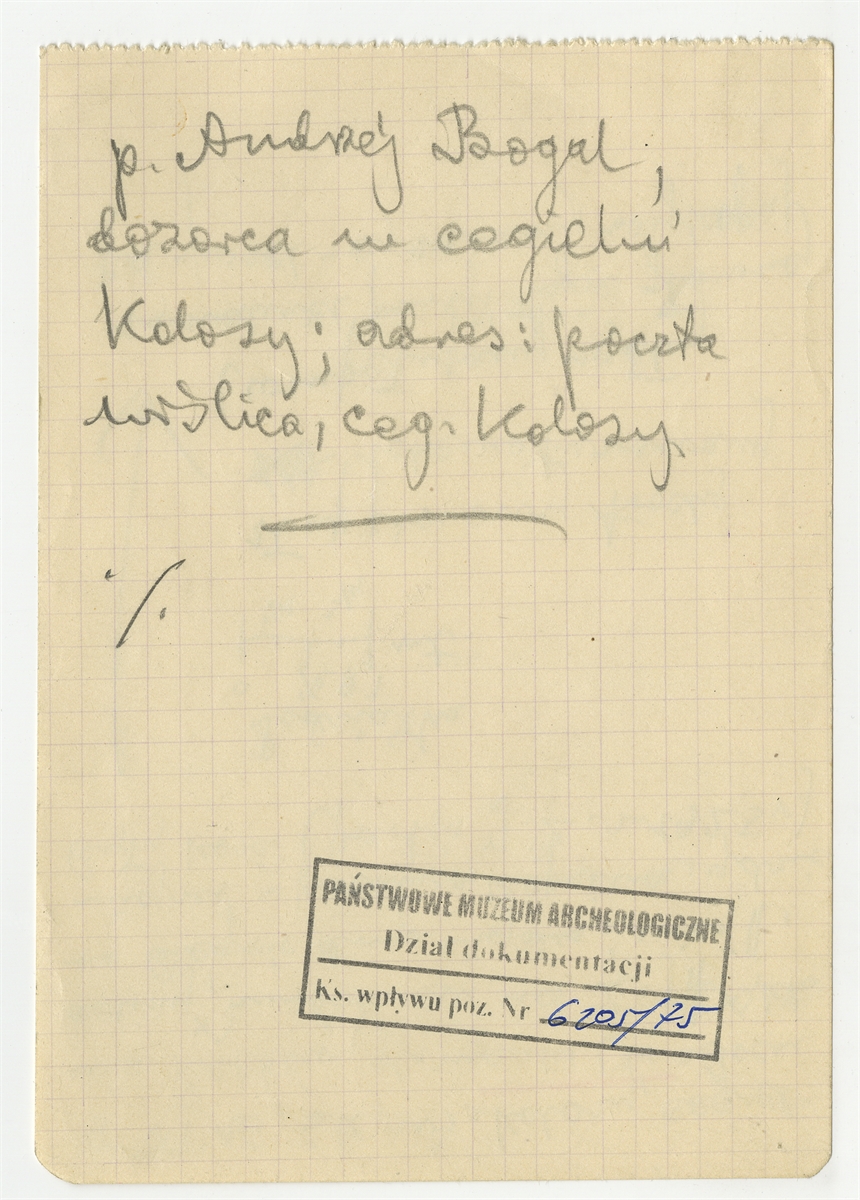 p. Andrzej Bogal,
dozorca w cegielni
Kolosy; adres: poczta
Wiślica, ceg. Kolosy.
./.
PAŃSTWOWE MUZEUM ARCHEOLOGICZNE
Dział dokumentacji
Ks. wpływu poz. Nr 6205/75